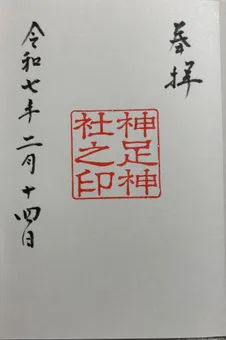 奉拝
神足神
社之印
令和七年二月十四日